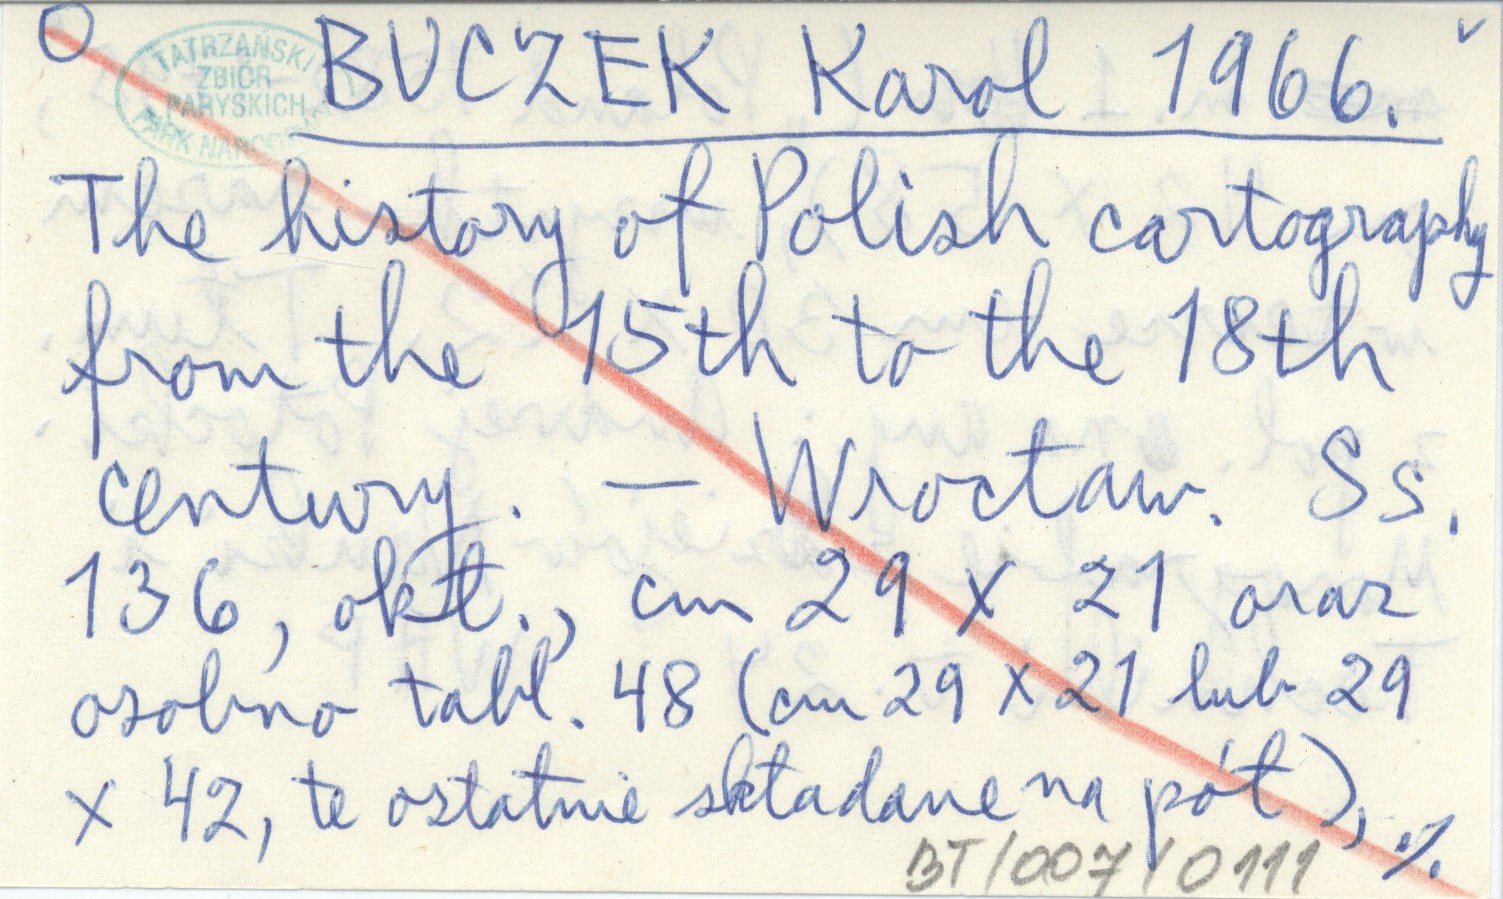 O
TATRZAŃSKI
ZBIÓR
PARYSKICH
PARK
BUCZEK Karol 1966.
The history of Polish cartography
from the 15th to the 18th
century. — Wrocław. Ss.
136, okł., cm 29 x 21 oraz
osobno tabl. 48 (cm 29 x 21 lub 29
x 42, te ostatnie składane na pół), ./.
BT/007/0111